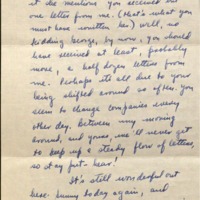 it he mentions you received but
one letter from me. (that's what you
must have written her) Well, no
kidding George, by now, you should
have received at least, probably
more, a half dozen letters from
me. Perhaps its all due to your
being shifted around so often. You
seem to change companies every
other day. Between my moving
around, and yours, we'll never get
to keep up a steady flow of letters,
so stay put - hear!
It's still wonderful out
here. Sunny today again, and